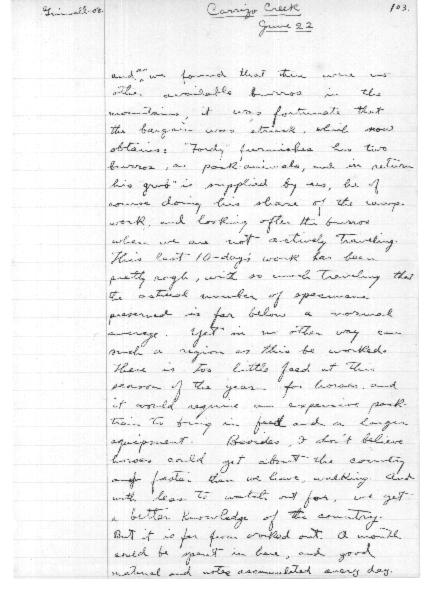 Grinnell - 08
Carrizo Creek
103.
June 22
and, as we found that there were no
other available burros in the
mountains, it was fortunate that
the bargain was struck, which now
obtains: "Fordy" furnishes his two
burros, as pack animals, and in return
his "grub" is supplied by us, he of
course doing his share of the camp-
work, and looking after the burros
when we are not actively traveling.
This last 10-day's work has been
pretty rough, with so much traveling that
the actual number of specimens
preserved is far below a normal
average. Yet in no other way can
such a region as this be worked.
There is too little feed at this
season of the year for horses, and
it would require an expensive pack-
train to bring in feed and a larger
equipment. Besides, I don't believe
horses could get about the country
any faster than we have, walking. And
with less to watch out for, we get
a better knowledge of the country.
But it is far from worked out. A month
could be spent in here, and good
material and notes accumulated every day.